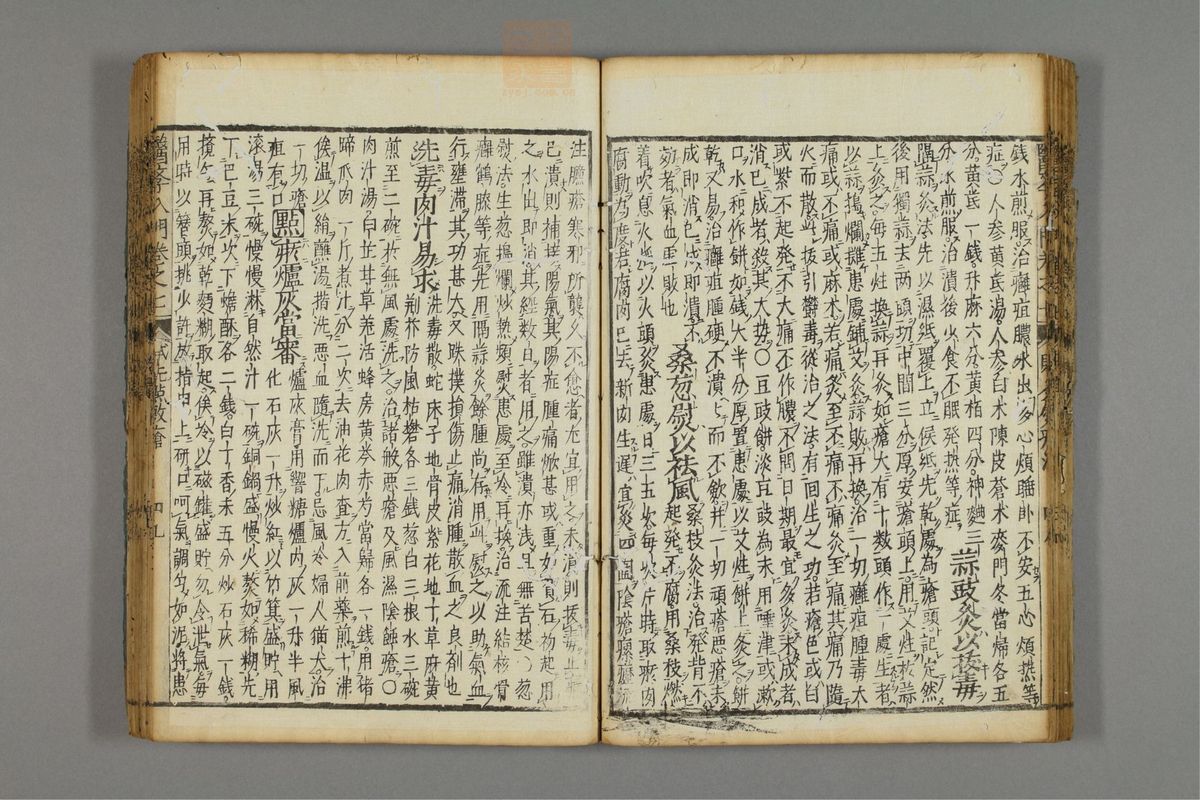 錢水煎服○治癰疽膿水出多心煩睡卧不安五心煩熱等
症○人參黃芪湯人參白朮陳皮蒼朮麥門冬當歸各五
分黃芪一錢升麻六分黃栢四分神麯三
分水煎服治潰後少食不眠発熱等症
蒜豉灸以拔毒
隔蒜灸法先以濕紙覆上立候紙先乾處為瘡頭記定然
後用獨蒜去兩頭切中間三分厚安瘡頭上用艾炷於蒜
上灸之每五炷換蒜再灸如瘡大有十數頭作一處生者
以蒜搗爛攤患處鋪艾灸蒜敗再換治一切癰疽腫毒大
痛或不痛或麻木若痛灸至不痛不痛灸至痛其痛乃隨
火而散此拔引欝毒從治之法有回生之功若瘡色或白
或紫不起発不大痛不作膿不問日期最宜多灸未成者
消已成者殺其大勢○豆豉餅淡豆豉為末用唾津或漱
口水和作餅如錢大半分厚置患處以艾炷餅上灸之餅
乾又易治癰疽腫硬不潰潰而不斂并一切頑瘡惡瘡未
成即消已成即潰
桑葱熨以祛風
桑枝灸法治発背不
起発不腐用桑枝燃
着吹息火焰以火頭灸患處日三五次每次片時取瘀肉
腐動為度若腐肉已去新肉生遲宜灸四圍陰瘡瘰癧流
注臁瘡寒邪所襲久不愈者尤宜用之未潰則拔毒止痛
已潰則補接陽氣其陽症腫痛焮甚或重如負石初起用
之水出即消其經數日者用之雖潰亦淺且無苦楚○葱
熨法生葱搗爛炒熱頻熨患處至冷再換治流注結核骨
癰鶴膝等症先用隔蒜灸餘腫尚存用此熨之以助氣血
行壅滯其功甚大又跌撲損傷止痛消腫散血之良剤也
洗毒肉汁易求
洗毒散蛇床子地骨皮紫花地丁草麻黃
荊芥防風枯礬各三錢葱白三根水三碗
煎至二碗於無風處洗之治諸般惡瘡及風濕陰蝕瘡○
肉汁湯白芷甘草羌活蜂房黃芩赤芍當歸各一錢用猪
蹄爪肉一斤煮汁分二次去油花肉査方入前藥煎十沸
候温以絹蘸湯揩洗惡血隨洗而下忌風冷婦人猫犬治
一切瘡
疽有口
點瘀爐灰當審
爐灰膏用響糖爐內灰一升半風
化石灰一升炒紅以竹箕盛貯用
滾湯三碗慢慢淋自然汁一碗銅鍋盛慢火熬如稀糊先
下巴豆末次下蟾酥各二錢白丁香末五分炒石灰一錢
攪勻再熬如乾麪糊取起候冷以磁鑵盛貯勿令泄氣每
用時以簪頭挑少許放指甲上研口呵氣調勻如泥將患